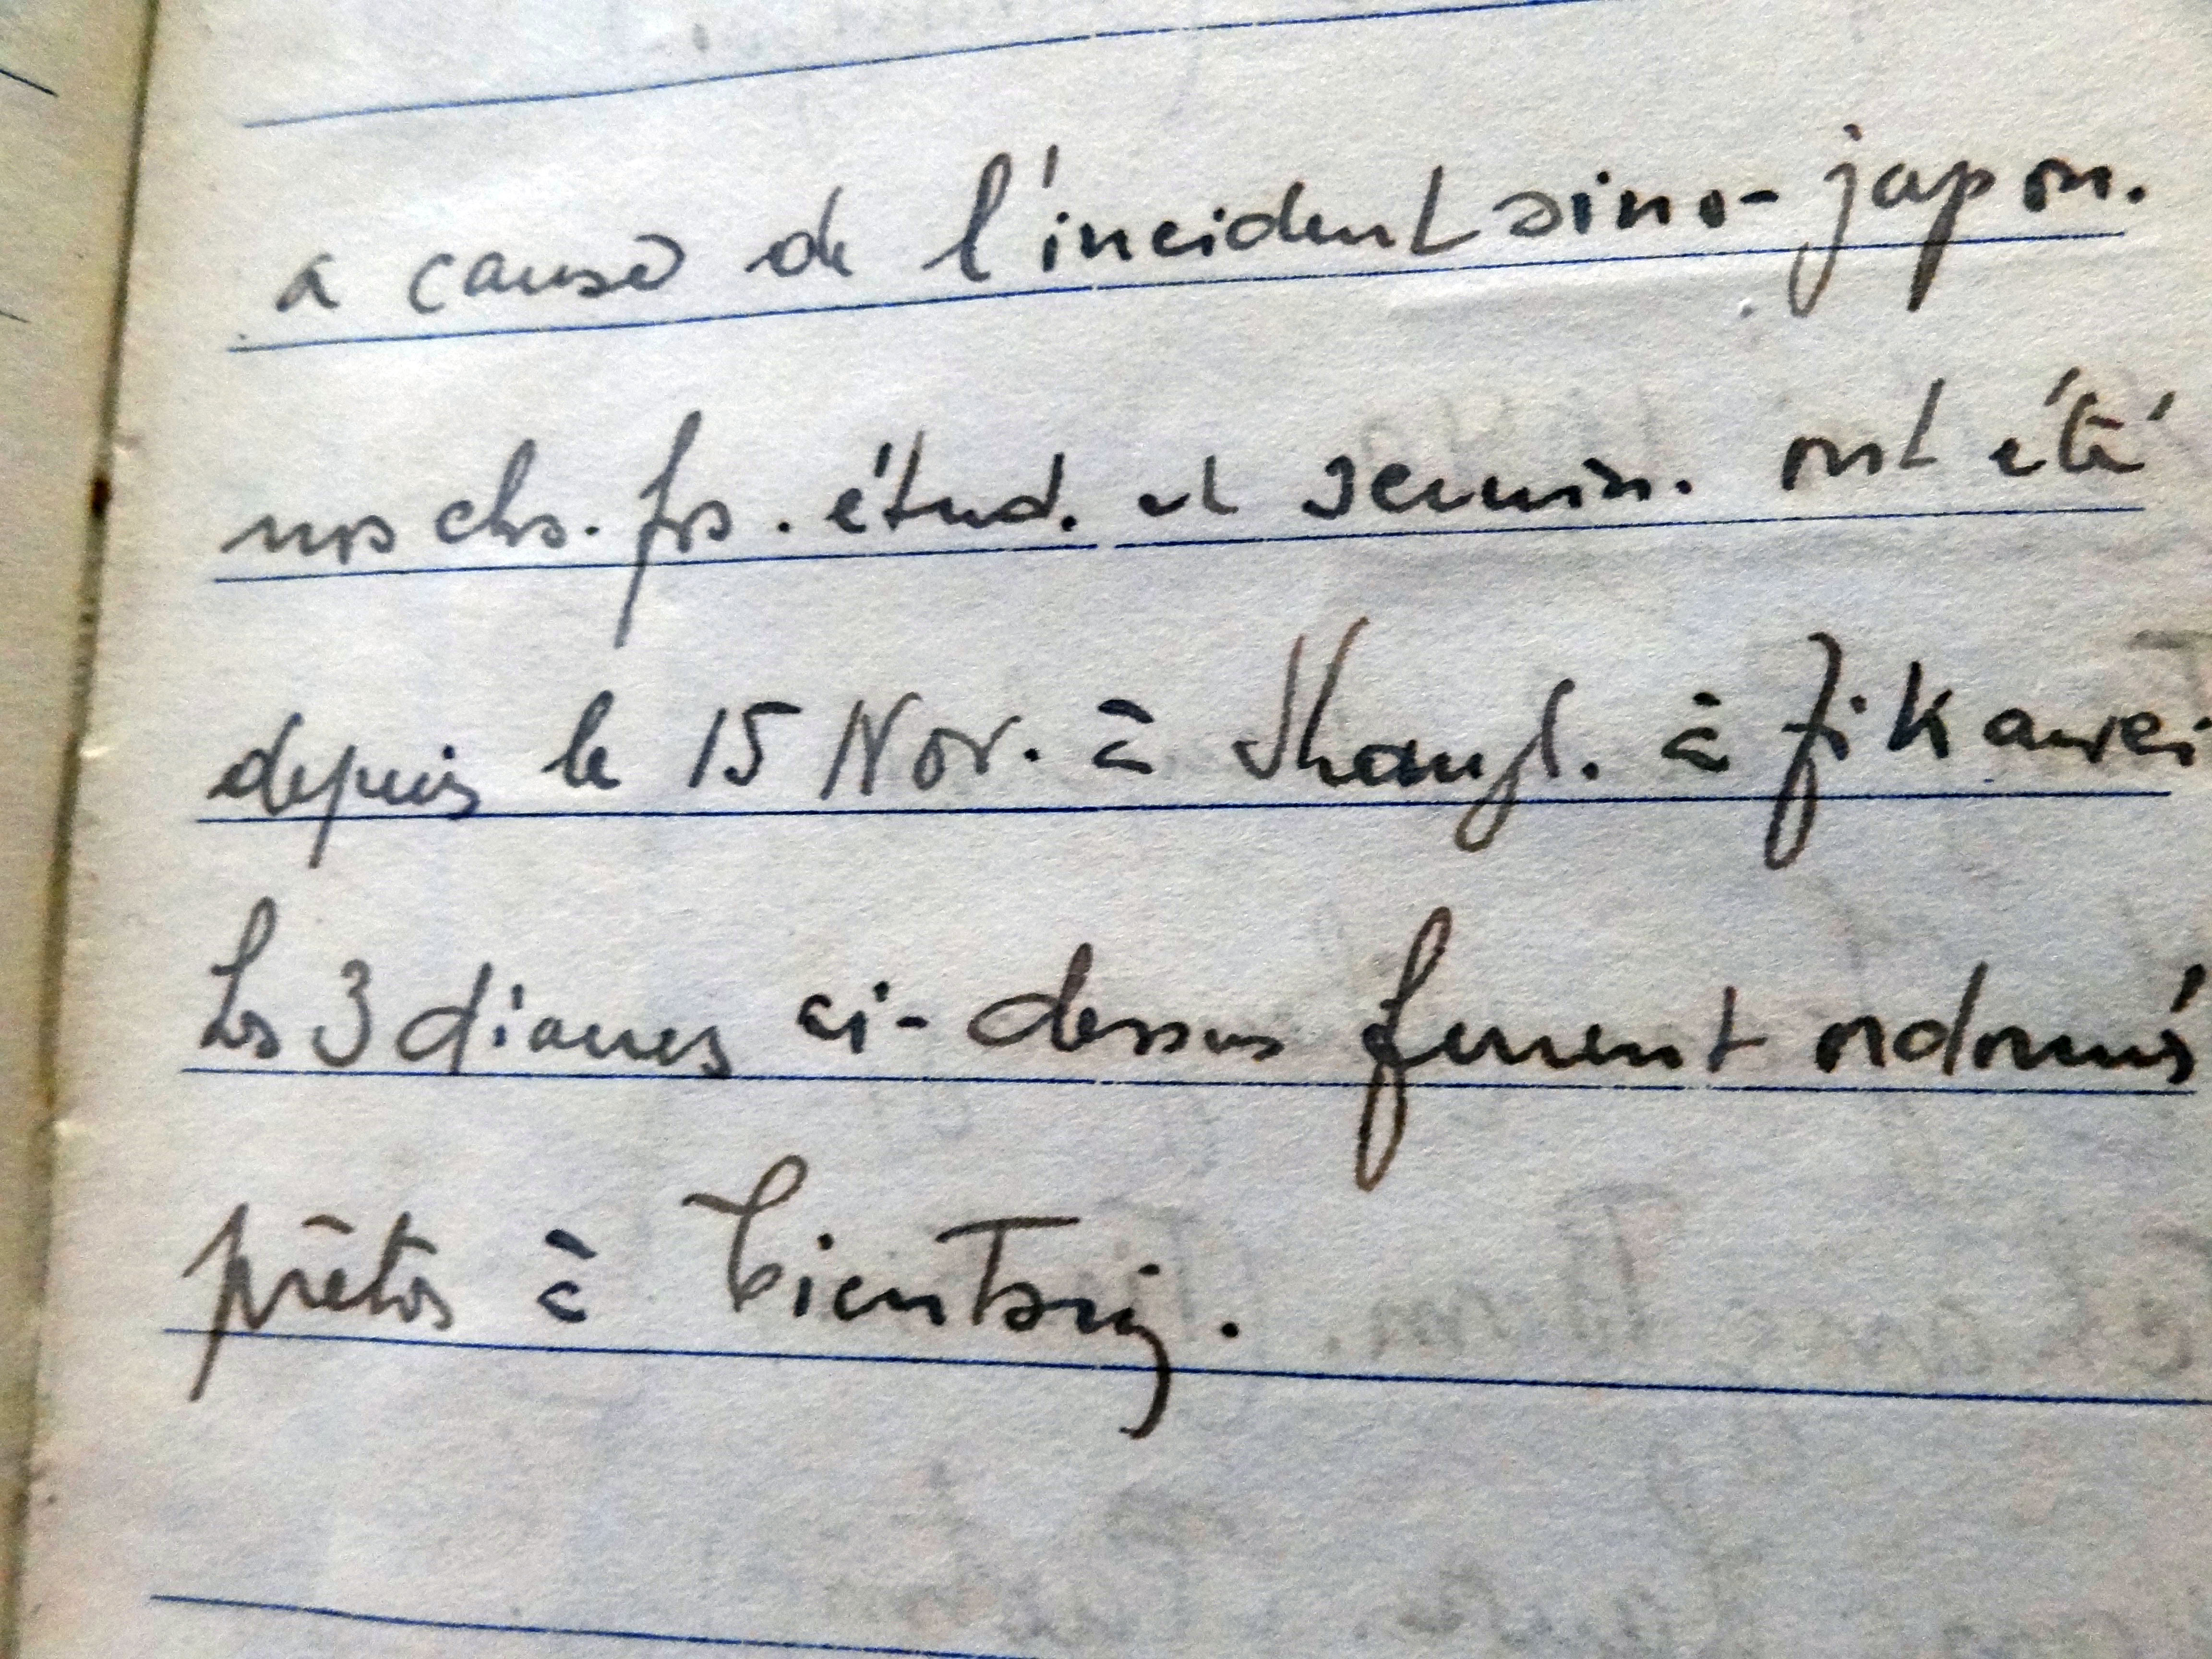 a cause de l'incident sino-japon.
nos chs. frs. étud. et semin. ont été
depuis le 15 Nov. à Shangh. à Zikawei
Les 3 diacres ci-dessus furent ordonnés
prêtres à Tientsin.